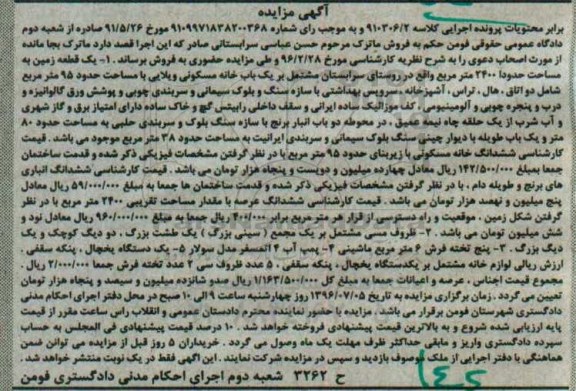 آگهی مزایده
برابر محتویات پرونده اجرایی کلاسه ۹۱۰۳۰۶/۲ و به موجب رای شماره ۹۱۰۹۹۷۱۸۳۸۲۰۰۳۶۸ مورخ ۹۱/۵/۲۶ صادره از شعبه دوم
دادگاه عمومی حقوقی فومن حکم به فروش ماترک مرحوم حسن عباسی سرابستانی صادر که این اجرا قصد دارد ماترک بجا مانده
از مورث اصحاب دعوی را به شرح نظریه کارشناسی مورخ ۹۶/۲/۲۸ و طی مزایده حضوری به فروش برساند. ۱- یک قطعه زمین به
مساحت حدودا ۲۴۰۰ متر مربع واقع در روستای سرابستان مشتمل بر یک باب خانه مسکونی ویلایی با مساحت حدود ۹۵ متر مربع
شامل دو اتاق، هال، تراس، آشپزخانه، سرویس بهداشتی با سازه سنگ و بلوک سیمانی و سربندی چوبی و پوشش ورق گالوانیزه و
درب و پنجره چوبی و آلومینیومی، کف موزائیک ساده ایرانی و سقف داخلی رابیتس گچ و خاک ساده دارای امتیاز برق و گاز شهری
و آب شرب از یک حلقه چاه نیمه عمیق، در محوطه دو باب انبار برنج با سازه سنگ بلوک و سربندی حلبی به مساحت حدود ۸۰
متر و یک باب طویله با دیوار چینی سنگ بلوک سیمانی و سربندی ایرانیت به مساحت حدود ۳۸ متر مربع موجود می باشد. قیمت
کارشناسی ششدانگ خانه مسکونی با زیربنای حدود ۹۵ متر مربع با در نظر گرفتن مشخصات فیزیکی ذکر شده و قدمت ساختمان
جمعا بمبلغ ۱۴۲/۵۰۰/۰۰۰ ریال معادل چهارده میلیون و دویست و پنجاه هزار تومان می باشد. قیمت کارشناسی ششدانگ انباری
های برنج و طویله دام، با در نظر گرفتن مشخصات فیزیکی ذکر شده و قدمت ساختمان ها جمعا به مبلغ ۵۹/۰۰۰/۰۰۰ ریال معادل
پنج میلیون و نهصد هزار تومان می باشد. قیمت کارشناسی ششدانگ عرصه با مقدار مساحت تقریبی ۲۴۰۰ متر مربع با در نظر
گرفتن شکل زمین، موقعیت و راه دسترسی از قرار هر متر مربع برابر ۴۰۰/۰۰۰ ریال جمعا به مبلغ ۹۶۰/۰۰۰/۰۰۰ ریال معادل نود و
شش میلیون تومان می باشد. ۲- ظروف مسی مشتمل بر یک مجمع (سینی بزرگ) یک طشت بزرگ، دو دیگ کوچک و یک
دیگ بزرگ. ۳- پنج تخته فرش ۶ متر مربع ماشینی ۴- پمپ آب ۴ اتمسفر مدل سولار ۵- یک دستگاه یخچال، پنکه سقفی.
ارزش ریالی لوازم خانه مشتمل بر یکدستگاه یخچال، پنکه سقفی، ۵ عدد ظروف سی ۲ عدد تخته فرش جمعا ۲/۰۰۰/۰۰۰ ریال.
مجموع قیمت اجناس، عرصه و اعیانات جمعا به مبلغ کل ۱/۱۶۳/۵۰۰/۰۰۰ ریال صدو شانزده میلیون و سیصد و پنجاه هزار تومان
تعیین می گردد. زمان برگزاری مزایده به تاریخ ۱۳۹۶/۰۷/۰۵ روز چهارشنبه ساعت ۹ الی ۱۰ صبح در محل دفتر اجرای احکام مدنی
دادگستری شهرستان فومن برقرار می باشد. مزایده با حضور نماینده محترم دادستان عمومی و انقلاب راس ساعت مقرر از قیمت
پایه ارزیابی شده شروع و به بالاترین قیمت پیشنهادی فروخته خواهد شد. ۱۰ درصد قیمت پیشنهادی فی المجلس به حساب
سپرده دادگستری واریز و مابقی حداکثر ظرف مهلت یک ماه وصول می گردد. خریداران ۵ روز قبل از مزایده می توانن ضمن
هماهنگی با دفتر اجرایی از ملک موصوف بازدید و سپس در مزایده شرکت نمایند. این آگهی فقط در یک نوبت منتشر خواهد شد.
ح ۳۲۶۲ شعبه دوم اجرای احکام مدنی دادگستری فومن